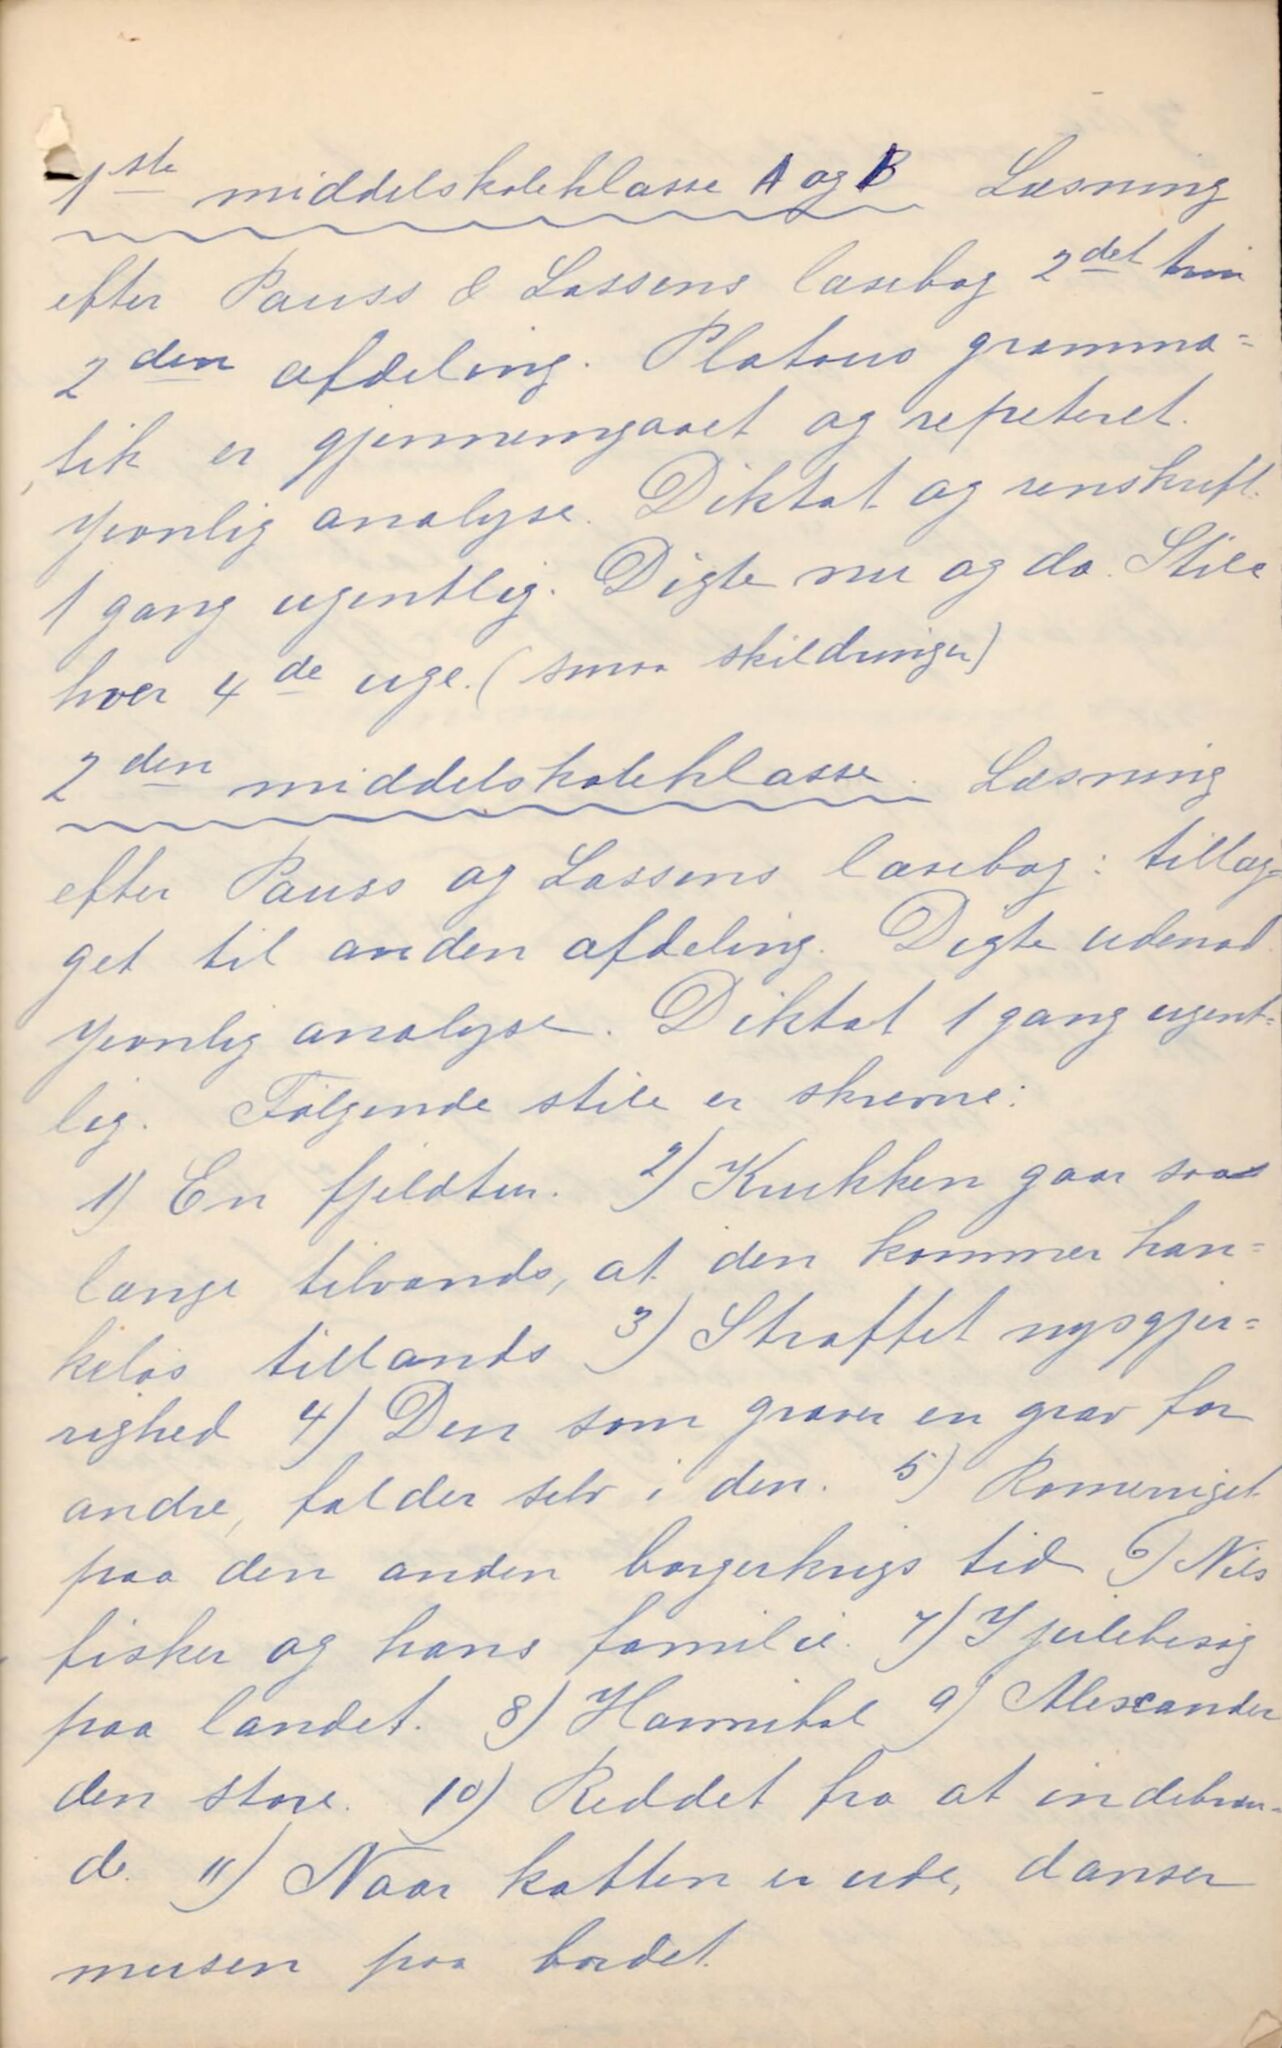 1ste middelskoleklasse A og B Læsning
efter Pauss & Lassens læsebog 2det trin
2den afdeling. Platous gramma=
tik er gjennemgaaet og repeteret.
Jevnlig analyse. Diktat og renskrift
1 gang ugentlig. Digte nu og da. Stile
hver 4de uge. (smaa skildringer)
2den middelskoleklasse. Læsning
efter Pauss og Lassens læsebog: tillæg=
get til anden afdeling. Digte udenad.
Jevnlig analyse. Diktat 1 gang ugent=
lig. Følgende stile er skrevne:
1) En fjeldtur. 2) Krukken gaar saa
længe tilvands, at den kommer han=
keløs tillands 3) Straffet nysgjer=
righed 4) Den som graver en grav for
andre, falder selv i den. 5) Romerriget
paa den anden borgerkrigs tid 6) Nils
fisker og hans familie. 7) I julebesøg
paa landet. 8) Hannibal 9) Alexander
den store. 10) Reddet fra at indebræn=
de. 11) Naar katten er ude, danser
musen paa bordet.